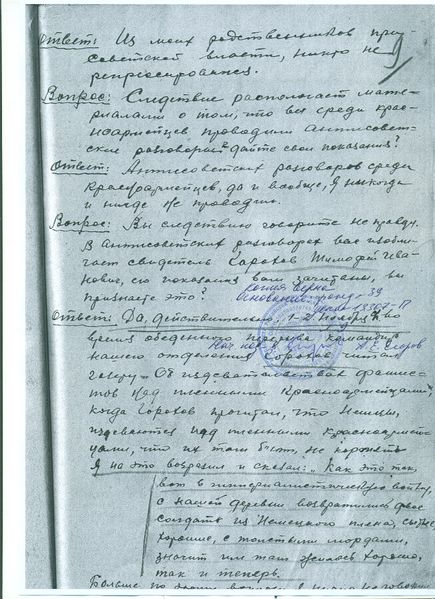 Ответ: Из моих родственников при
советской власти, никто не
репрессировался.
9
Вопрос: Следствие располагает мате-
риалами о том, что вы среди крас-
ноармейцев проводили антисовет-
ские разговоры дайте свои показания?
Ответ: Антисоветских разговоров среди
красноармейцев, да и вообще, я никогда
и нигде не проводил.
Вопрос: Вы следствию говорите не правду.
В антисоветских разговорах вас изобли-
чает свидетель Горохов Тимофей Ива-
нович, его показания вам зачитаны, вы
признаете это?
Копия верна
Основание: фонд-39
Ответ: Да, действительно, 1-2 ноября во
время обеденного перерыва командир
нашего отделения Горохов читал
газету "Об издевательствах фашис-
тов над пленными красноармейцами,
когда Горохов прочитал, что немцы,
издеваются над пленными красноармей-
цами, что их там бьют, не кормят
Я на это возразил и сказал: "Как это так,
вот в империалистическую войну,
с нашей деревни возвратились двое
солдат из немецкого плена,
хорошие, с толстыми мордами,
значит им там жилось хорошо,
так и теперь.
Больше по